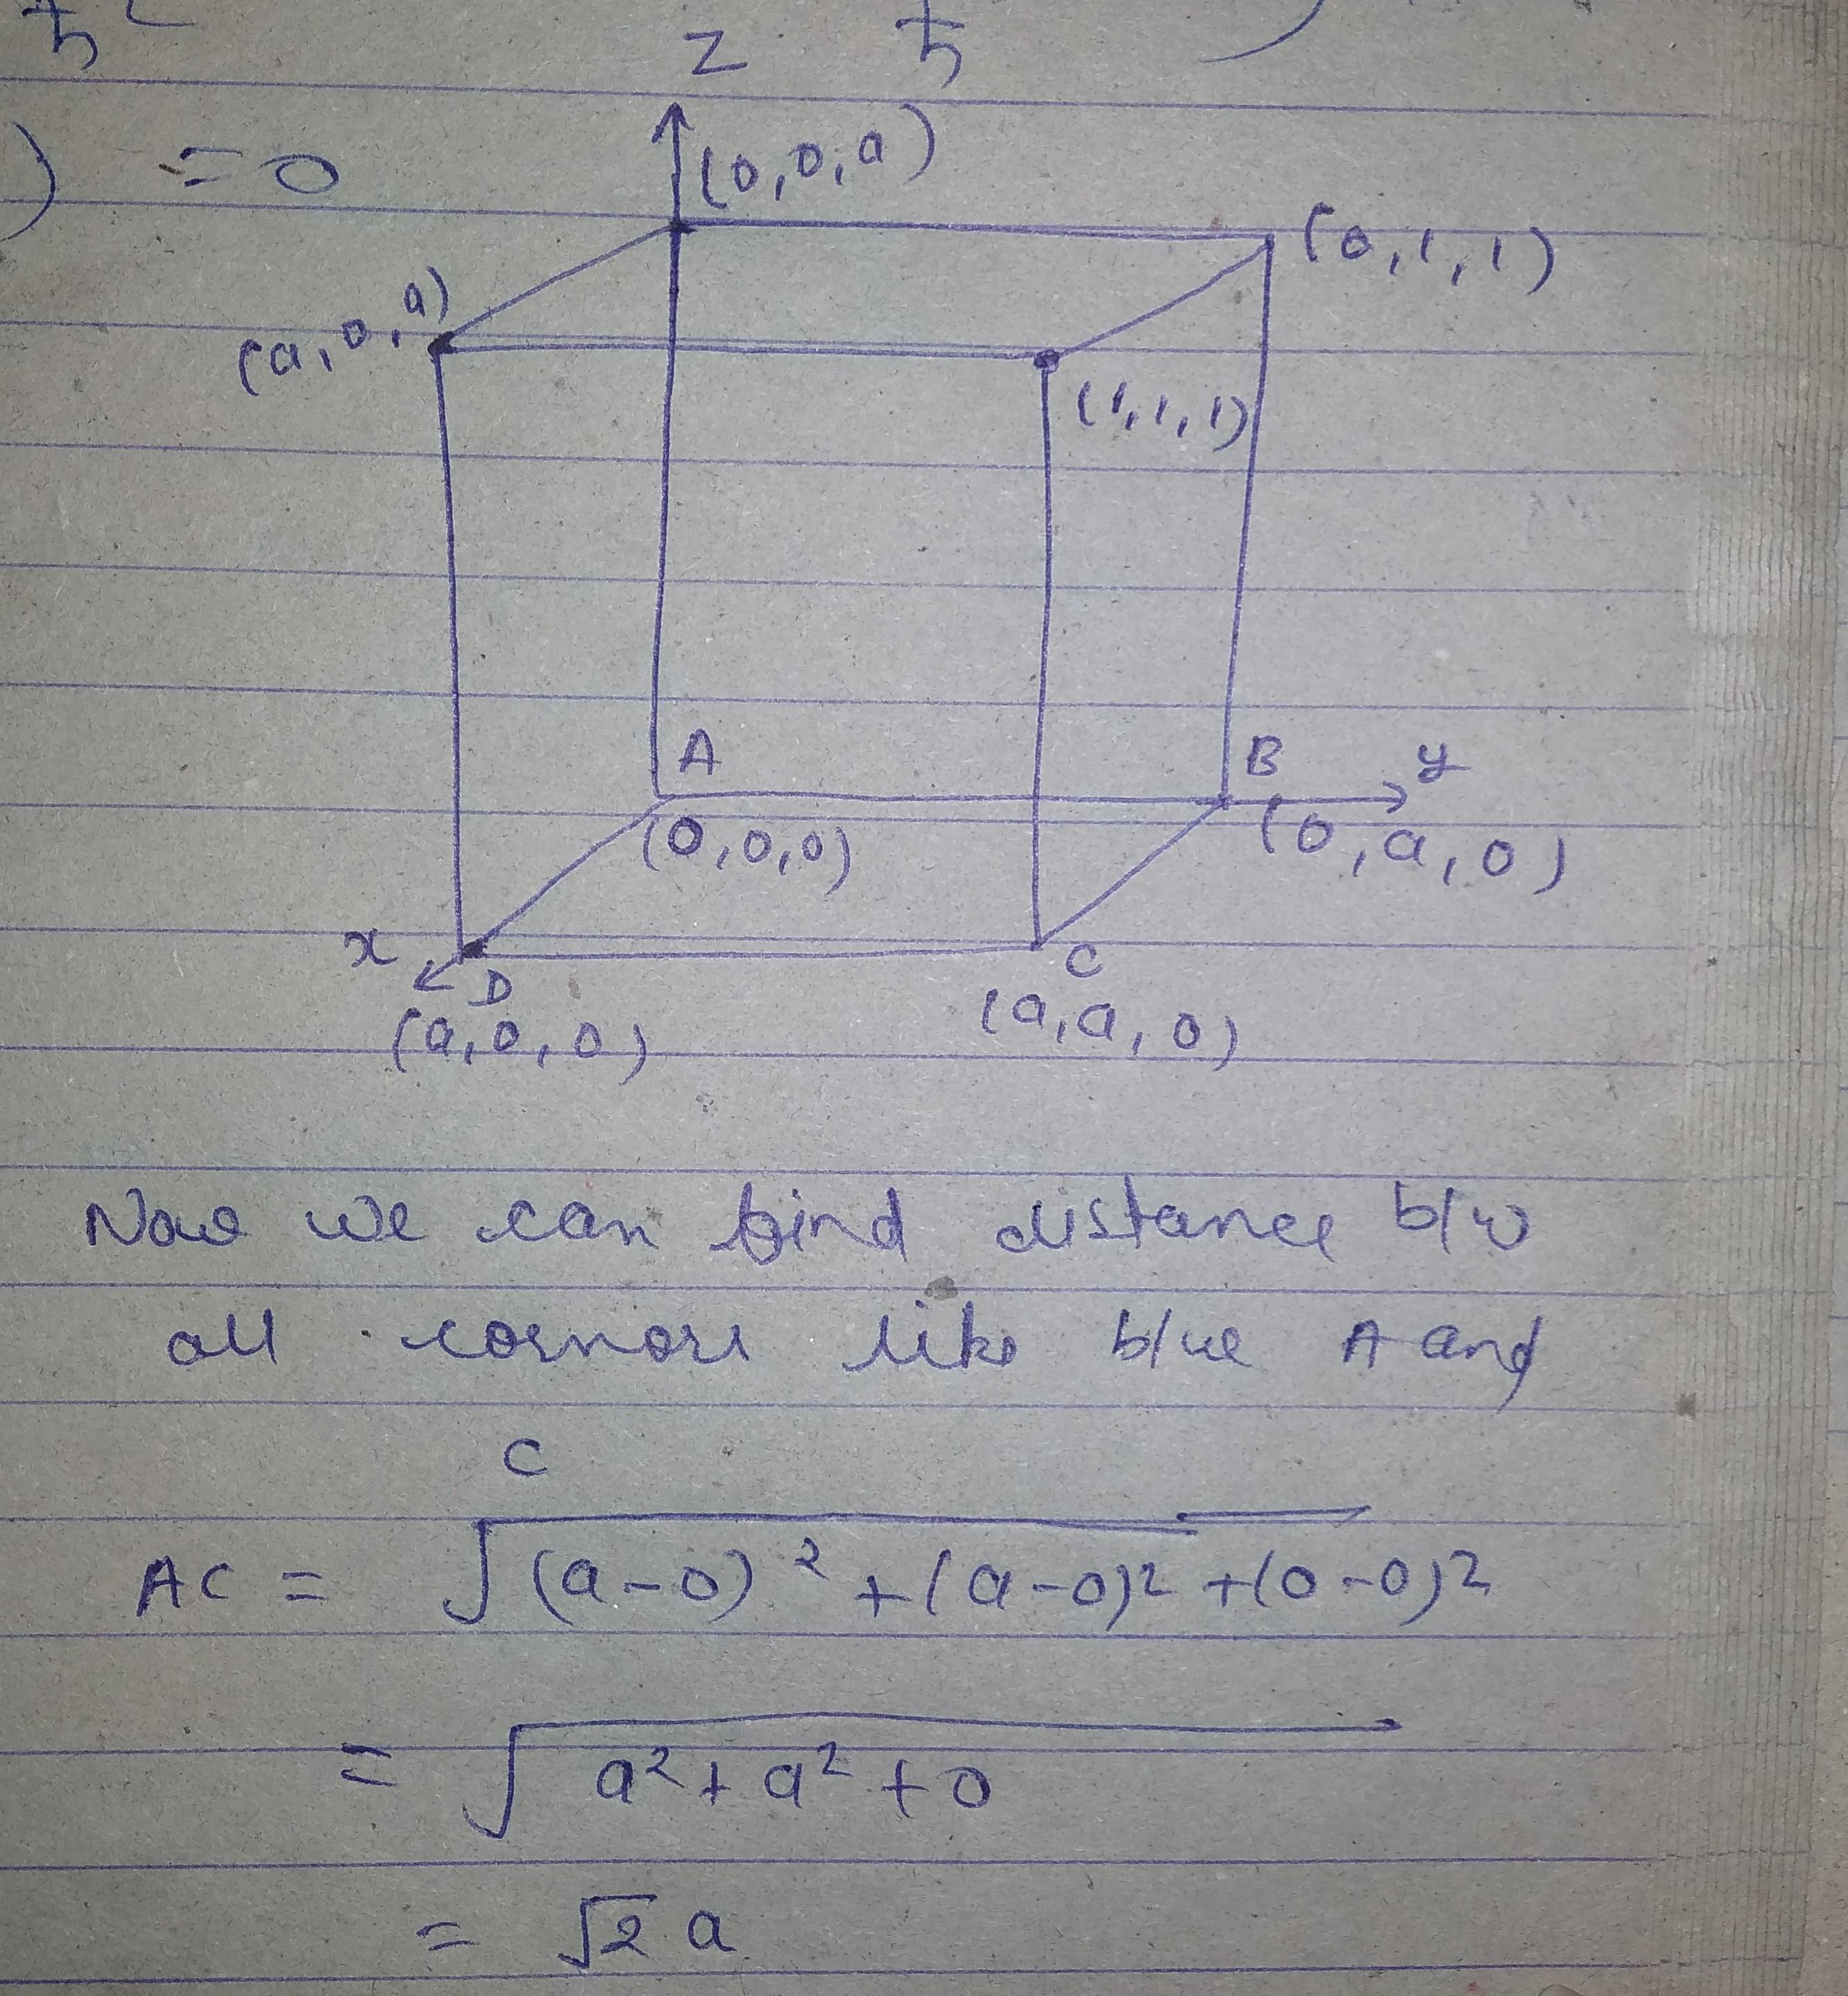 ħ 2 z ħ )
) = 0
(0,0,a)
(0,1,1)
(a,0,a)
(1,1,1)
A B y
(0,0,0) (0,a,0)
x D C
(a,0,0) (a,a,0)
Now we can find distance b/w
all cornors like b/we A and
C
AC = √(a-0)² + (a-0)² + (0-0)²
= √a² + a² + 0
= √2 a